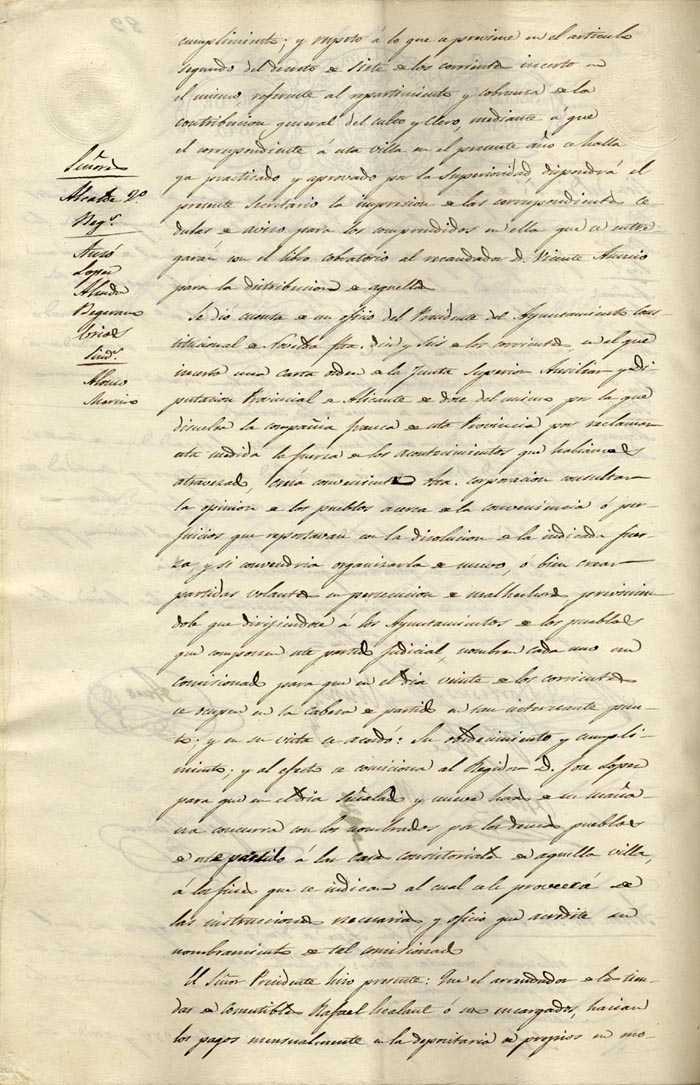 Señores
Alcalde 2º
Reg.s
Azizó
Lopez
Alcolea
Begerano
Síndºs
Alonso
cumplimiento; y respeto á lo que se previene en el articulo
segundo del decreto de siete de los corrientes inserto en
el mismo, referente al repartimiento y cobranza de la
contribucion general del culto y clero, mediante á que
el correspondiente á esta villa en el presente año se halla
ya practicado y aprovado por la Superioridad, dispondrá el
presente Secretario la impresion de las correspondientes ce
dulas de aviso para los comprendidos en ella que se entre
garán con el libro cobratorio al recaudador D. Vicente
para la distribucion de aquellas
Se dió cuenta de un oficio del Presidente del Ayuntamiento Cons
titucional de Novelda fha. diez y seis de los corrientes, en el que
inserta una carta orden de la Junta Superior Auxiliar y Di
putacion Provincial de Alicante de doce del mismo por la que
disuelta la compañia franca de esta Provincia por reclamar
esta medida la fuerza de los acontecimientos que habiamos
atravesado, creia conveniente dha. corporacion consultar
la opinion de los pueblos acerca de la conveniencia ó per
juicios que reportavan con la disolucion de la indicada fuer
za, y si convendria organizarla de nuevo, ó bien crear
partidas volantes en persecucion de malhechores previnien
dole que dirigiendose á los Ayuntamientos de los pueblos
que componen este partido judicial, nombren cada uno un
comisionado para que en el dia veinte de los corrientes
se ocupen en la cabeza de partido en tan interesante pun
to; y en su vista se acordó: Su obedecimiento y cumpli-
miento; y al efecto se comisiona al Regidor D. Jose Lopez
para que en el dia señalado y nueve horas de su maña
na concurra con los nombrados por los demas pueblos
de este partido á las casas consistoriales de aquella villa,
á los fines que se indican al cual se le proveerá de
las instrucciones necesarias y oficio que acredite su
nombramiento de tal comisionado
El Señor Presidente hizo presente: Que el arrendador de la tien
das de comestibles Rafael ó sus encargados, hacian
los pagos mensualmente en la depositaria de propios en mo-